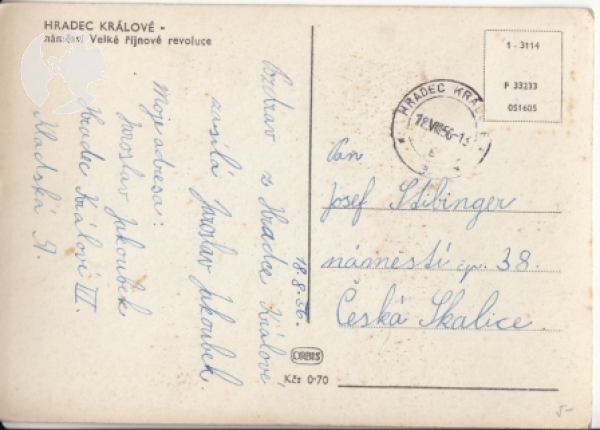 HRADEC KRÁLOVÉ -
náměstí Velké říjnové revoluce
1 - 3114
F 33233
051605
HRADEC KRÁLOVÉ
18.VIII.56-13
Pan
Josef Stibinger
náměstí čp. 38.
Česká Skalice.
18.8.56.
Pozdrav z Hradce Králové
zasílá Jaroslav Jakoubek.
Moje adresa:
Jaroslav Jakoubek
Hradec Králové III.
ORBIS
Kčs 0·70
5-